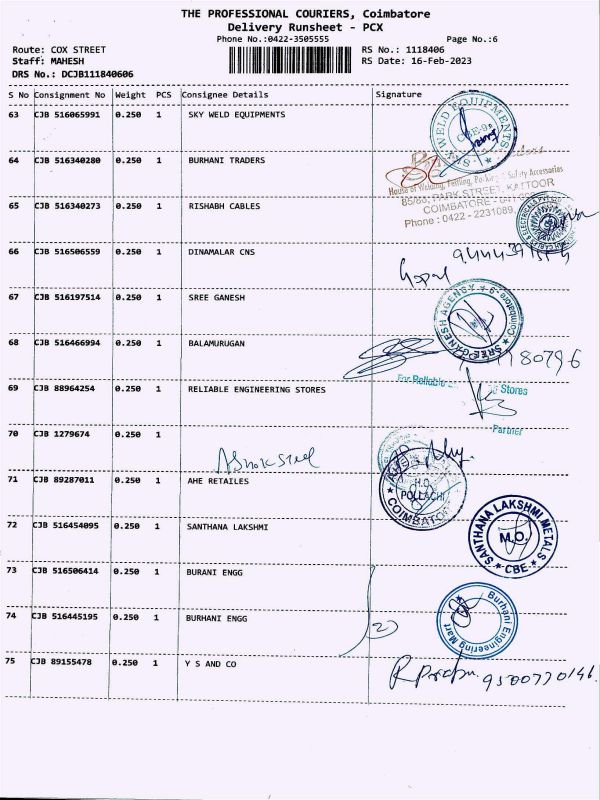 THE PROFESSIONAL COURIERS, Coimbatore
Delivery Runsheet - PCX
Phone No.:0422-3505555 Page No.:6
Route: COX STREET RS No.: 1118406
Staff: MAHESH RS Date: 16-Feb-2023
DRS No.: DCJB111840606
S No Consignment No Weight PCS Consignee Details Signature
63 CJB 516065991 0.250 1 SKY WELD EQUIPMENTS
SKY WELD EQUIPMENTS CBE-9
64 CJB 516340280 0.250 1 BURHANI TRADERS
House of Welding, Safety Accessories
85/88, PARK STREET, KATTOOR
COIMBATORE
Phone : 0422 - 2231089
65 CJB 516340273 0.250 1 RISHABH CABLES
66 CJB 516506559 0.250 1 DINAMALAR CNS
Gopal
67 CJB 516197514 0.250 1 SREE GANESH
SREE GANESH AGENCY Coimbatore-9
68 CJB 516466994 0.250 1 BALAMURUGAN
80796
69 CJB 88964254 0.250 1 RELIABLE ENGINEERING STORES
For Reliable Stores
Partner
70 CJB 1279674 0.250 1
Ashok Steel
71 CJB 89287011 0.250 1 AHE RETAILES
H.O. POLLACHI COIMBATO
72 CJB 516454095 0.250 1 SANTHANA LAKSHMI
SANTHANA LAKSHMI METALS M.O. CBE
73 CJB 516506414 0.250 1 BURANI ENGG
74 CJB 516445195 0.250 1 BURHANI ENGG
Burhani Engineering Mart
75 CJB 89155478 0.250 1 Y S AND CO
9500770146